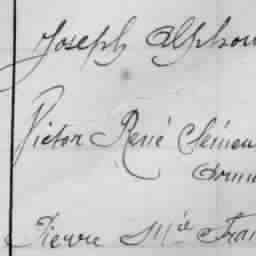 Joseph Alphon
Victor René Clémen
Pierre Mie Fran